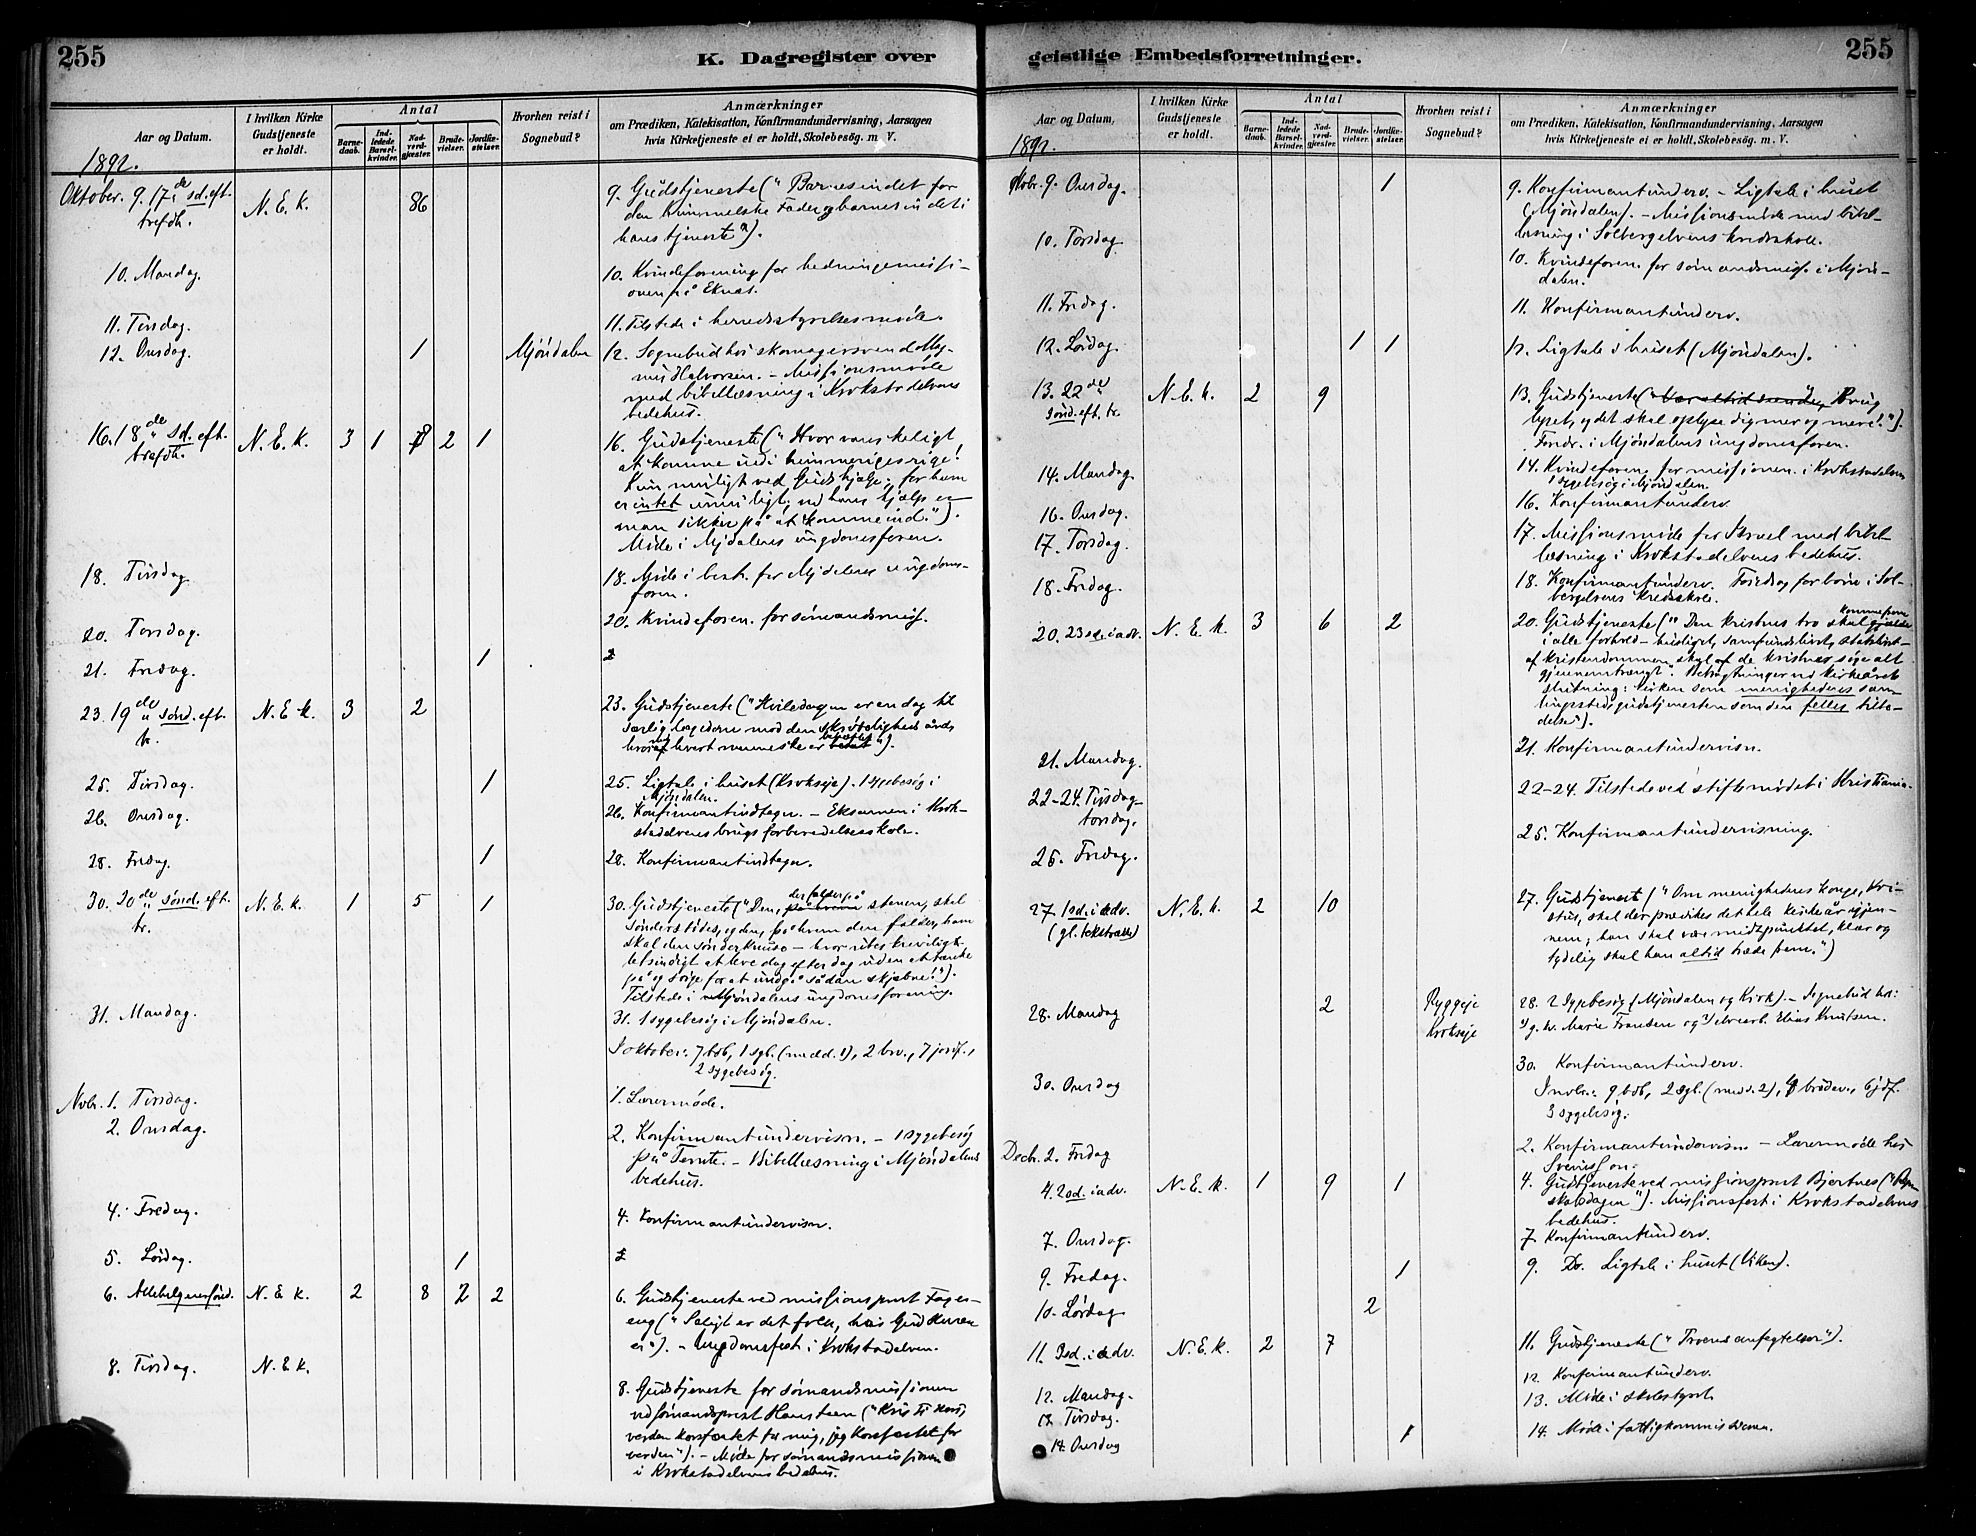 255
K. Dagregister over
Aar og Datum.
I hvilken Kirke Gudstjeneste er holdt.
Antal
Barnedaab.
Indledede Barselkvinder.
Nadverdgjæster.
Brudevielser.
Jordfæstelser.
Hvorhen reist i Sognebud?
Anmærkninger
om Prædiken, Katekisation, Konfirmandundervisning, Aarsagen
hvis Kirketjeneste ei er holdt, Skolebesøg. m. V.
1892.
Oktober. 9. 17de sd. eft. trefdh. N. E. K. 86
9. Gudstjeneste ("Barnesindet for
den himmelske Fader og barnesindet i
hans tjeneste").
10. Mandag.
10. Kvindeforening for hedningemissi-
onen på Eknes.
11. Tirsdag.
11. Tilstede i herredsstyrelsesmøde.
12. Onsdag. 1 Mjöndalen
12. Sognebud hos skomagersvend Mag-
nus Halvorsen. – Missionsmøde
med bibellæsning i Krokstadelvens
bedehus.
16. 18de sd. eft. trefdh. N. E. K. 3 1 8 2 1
16. Gudstjeneste ("Hvor vanskeligt
at komme ind i himmeriges rige!
Kun muligt ved Guds hjælp; for ham
er intet umuligt, ved hans hjælp er
man sikker på at komme ind.").
Møde i Mjdalens ungdomsforen.
18. Tirsdag
18. Møde i best. for Mjdalens ungdoms-
foren.
20. Torsdag.
20. Kvindeforen. for sømandsmiss.
21. Fredag. 1
23. 19de sønd. eft. tr. N. E. K. 3 2
23. Gudstjeneste ("Hviledagen er en dag til
særlig lægedom mod den skrøbelighed
hvert menneske er").
25. Tirsdag. 1
25. Ligtale i huset (Krokseje). 1 sygebesøg i
Mjöndalen.
26. Onsdag.
26. Konfirmantindtegn. – Eksamen i Krok-
stadelvens brugs forberedelsesskole.
28. Fredag. 1
28. Konfirmantindtegn.
30. 20de sønd. eft. tr. N. E. K. 1 5 1
30. Gudstjeneste ("Den, der falder på stenen, skal
sønderstødes, og den, på hvem den falder, ham
skal den sønderknuse –
letsindigt at leve dag efter dag uden at tænke
på og sørge for at undgå sådan skjæbne!").
Tilstede i Mjöndalens ungdomsforening.
31. Mandag.
31. 1 sygebesög i Mjöndalen.
I oktober: 7 bdb, 1 sgb. (medd. 1), 2 brv., 7 jordf.,
2 sygebesög.
Novbr. 1. Tirsdag.
1. Lærermøde.
2. Onsdag.
2. Konfirmantundervisn. – 1 sygebesög
på Temte. – Bibellæsning i Mjöndalens
bedehus.
4. Fredag.
4. Konfirmantundervisn.
5. Lørdag. 1
6. Allehelgensсønd. N. E. K. 2 8 2 2
6. Gudstjeneste ved missionsprest Fager-
eng ("Saligt er det folk, hvis Gud Herren
er"). – Ungdomsfest i Krokstadelven.
8. Tirsdag. N. E. K.
8. Gudstjeneste for sømandsmissionen
ved sømandsprest Hansteen ("Kristi kors,
verden korsfæstet for mig, jeg korsfæstet for
verden"). – Møde for sømandsmissionen
i Krokstadelvens bedehus.
geistlige Embedsforretninger.
255
Aar og Datum.
I hvilken Kirke Gudstjeneste er holdt.
Antal
Barnedaab.
Indledede Barselkvinder.
Nadverdgjæster.
Brudevielser.
Jordfæstelser.
Hvorhen reist i Sognebud?
Anmærkninger
om Prædiken, Katekisation, Konfirmandundervisning, Aarsagen
hvis Kirketjeneste ei er holdt, Skolebesög. m. V.
1892.
Novbr. 9. Onsdag. 1
9. Konfirmantunderv. – Ligtale i huset
(Mjöndalen). – Missionsmøde med bibel-
læsning i Solbergelvens kredsskole.
10. Torsdag
10. Kvindeforen. for sømandsmiss. i Mjøn-
dalen.
11. Fredag.
11. Konfirmantunderv.
12. Lørdag. 1 1
12. Ligtale i huset (Mjöndalen).
13. 22de sönd. eft. tr. N. E. K. 2 9
13. Gudstjeneste ("Brug
lyset, og det skal oplyse dig mer og mere!").
Foredr. i Mjöndalens ungdomsforen.
14. Mandag.
14. Kvindeforen. for missionen i Krokstadelven
1 sygebesög i Mjöndalen.
16. Onsdag.
16. Konfirmantunderv.
17. Torsdag.
17. Missionsmøde for Israel med bibel-
læsning i Krokstadelvens bedehus.
18. Fredag.
18. Konfirmantunderv. Foredrag for børn i Sol-
bergelvens kredsskole.
20. 23 sde i adv. N. E. K. 3 6 2
20. Gudstjeneste ("Den kristnes tro skal komme frem
i alle forhold – huslivet, samfundslivet, statslivet –
af kristendommen skal af de kristnes søges alt
gjennemtrængt". Betragtninger ved kirkeårets
slutning: kirken som menighedens sam-
lingssted, gudstjenesten som den felles tilbe-
delse").
21. Mandag.
21. Konfirmantundervisn.
22–24. Tirsdag–torsdag.
22–24. Tilstede ved stiftsmødet i Kristiania.
25. Fredag.
25. Konfirmantundervisning.
27. 1 sd. i adv. (gl. tekstrække) N. E. K. 2 10
27. Gudstjenest ("Om menighedens konge, Kri-
stus, skal der prædikes det hele kirkeår igjen-
nem; han skal være midtpunktet, klar og
tydelig skal han altid træde frem.")
28. Mandag 2 Ryggeje Krokseje
28. 2 sygebesög (Mjöndalen og Kirk). – Sognebud hos:
g. kv. Marie Fransen og Elias Knutsen.
30. Onsdag
30. Konfirmantunderv.
I novbr.: 9 bdb, 2 sgb. (medd. 2), 4 brudev., 6 jdf.
3 sygebesög.
Decb. 2. Fredag
2. Konfirmantundervisn. – Lærermøde hos
Svensson.
4. 2 sd. i adv. N. E. K. 1 9 1
4. Gudstjeneste ved missionsprest Bjertnes
). Missionsfest i Krokstadelvens
bedehus.
7. Onsdag.
7. Konfirmantunderv.
9. Fredag. 1
9. Do. Ligtale i huset (Viken).
10. Lørdag 2
11. 3 sd. i adv. N. E. K. 2 7
11. Gudstjeneste ("Troens anfegtelser").
12. Mandag.
12. Konfirmantunderv.
13. Tirsdag.
13. Møde i skolestyret.
14. Onsdag 1
14. Møde i fattigkommissionen.